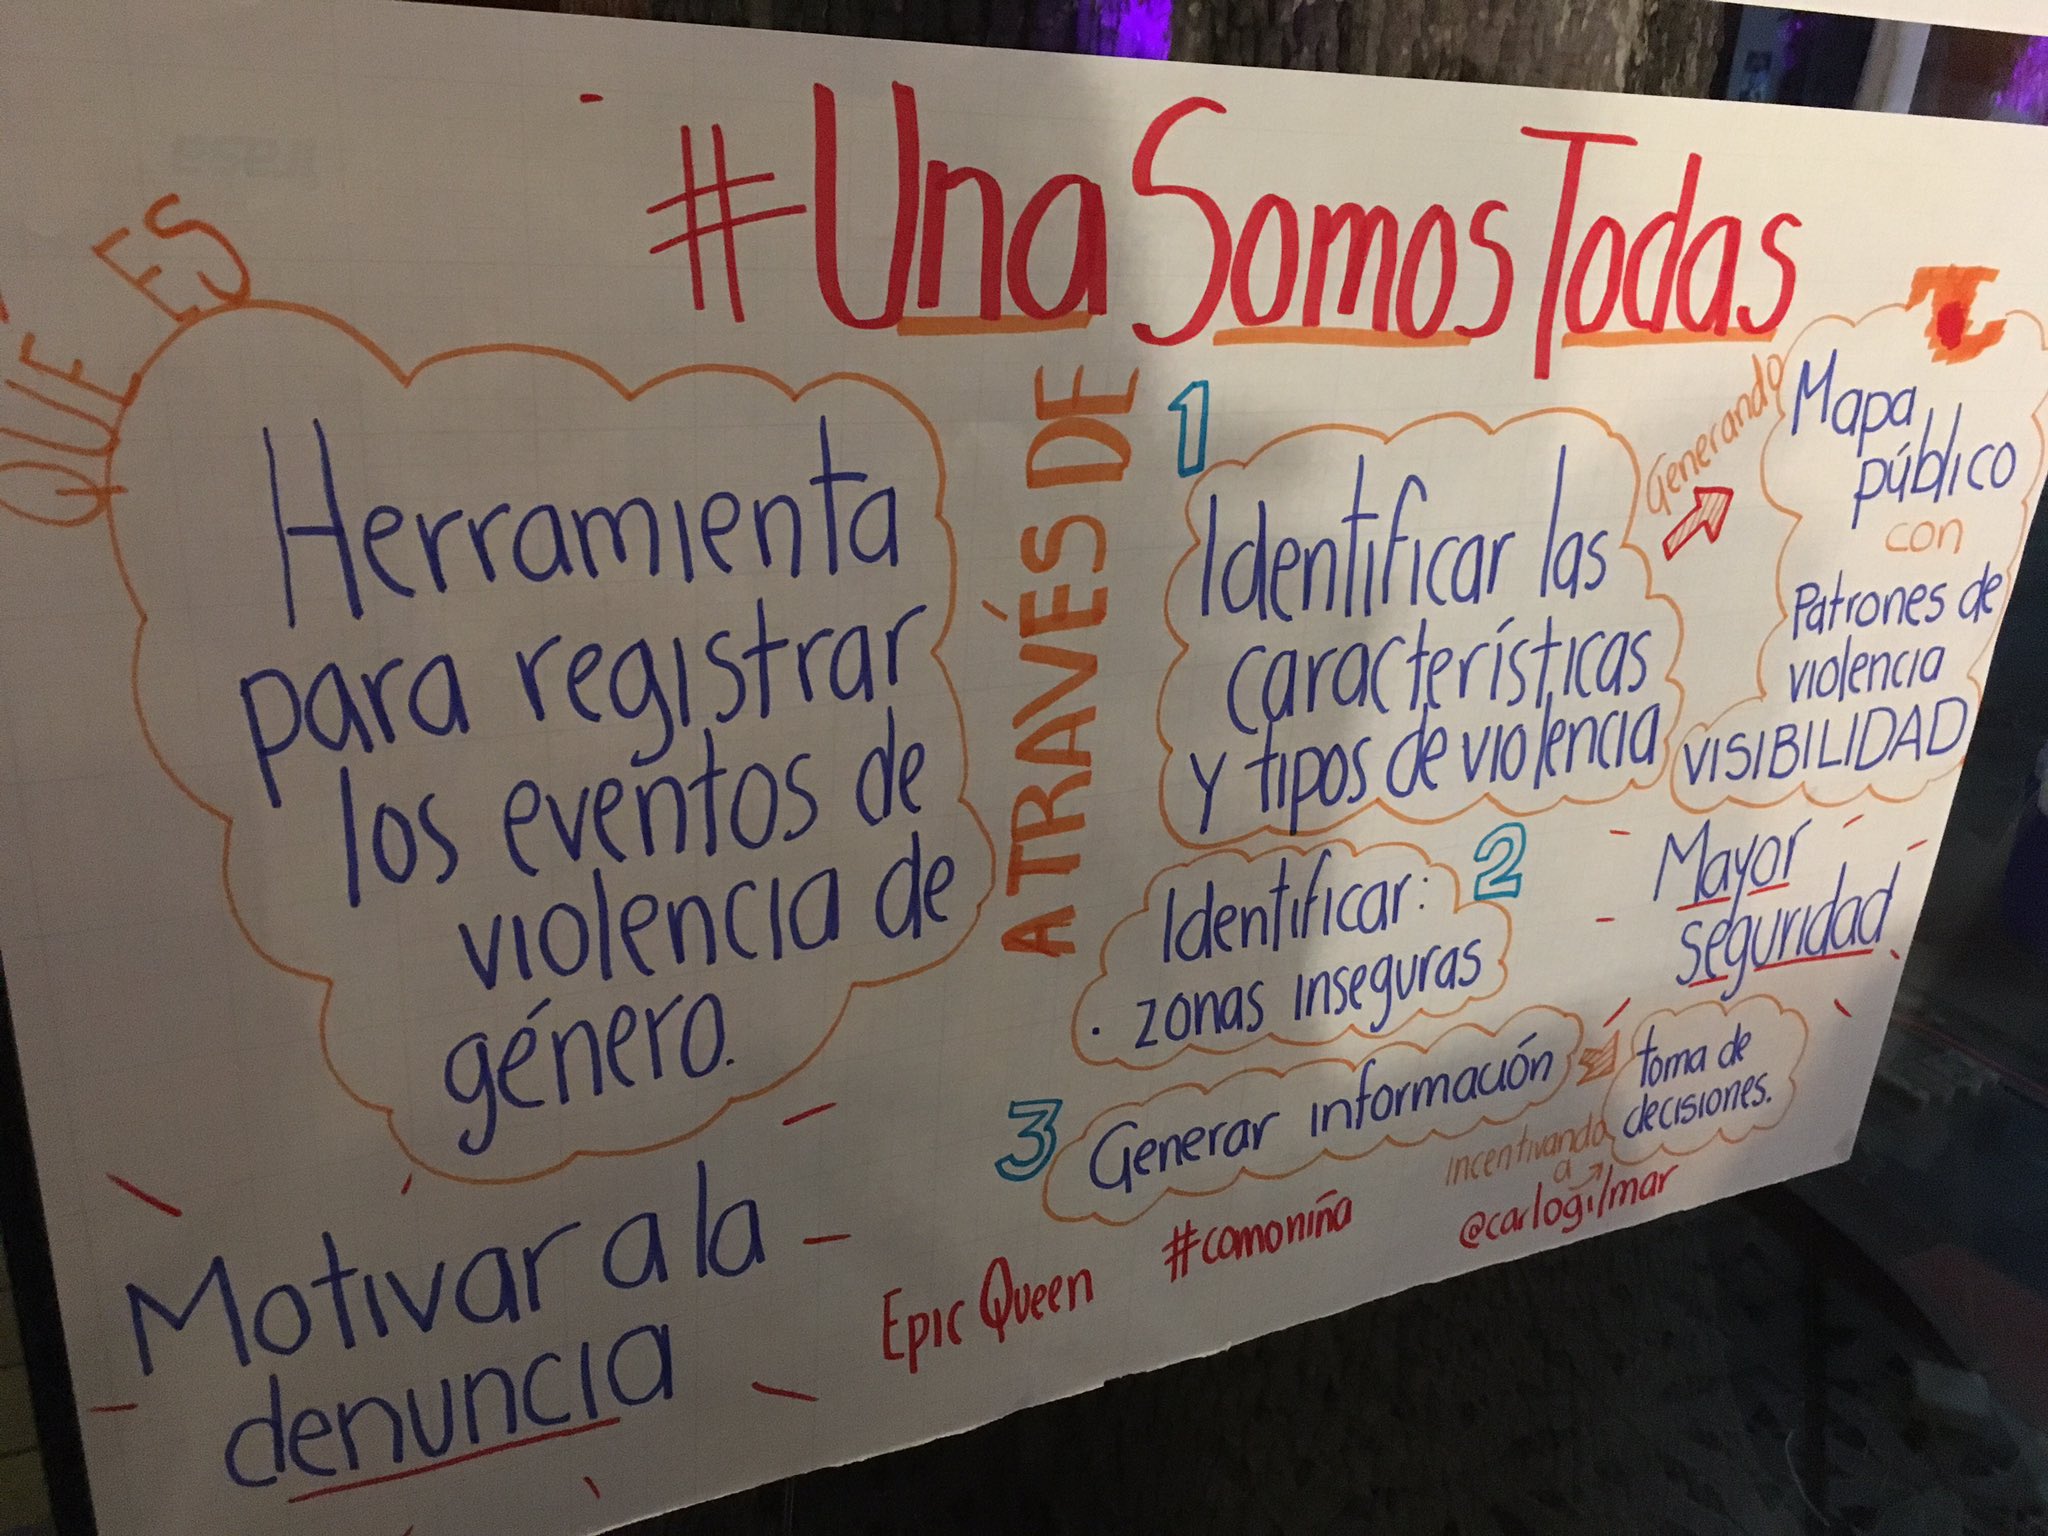 #UnaSomosTodas
QUE ES
Herramienta
para registrar
los eventos de
violencia de
género.
Motivar a la
denuncia
ATRAVÉS DE
1
Identificar las
características
y tipos de violencia
Generando
Mapa
público
con
Patrones de
violencia
VISIBILIDAD
2
Identificar:
. zonas inseguras
Mayor
seguridad
3
Generar información
incentivando
a
toma de
decisiones.
Epic Queen
#comoniña
@carlogilmar